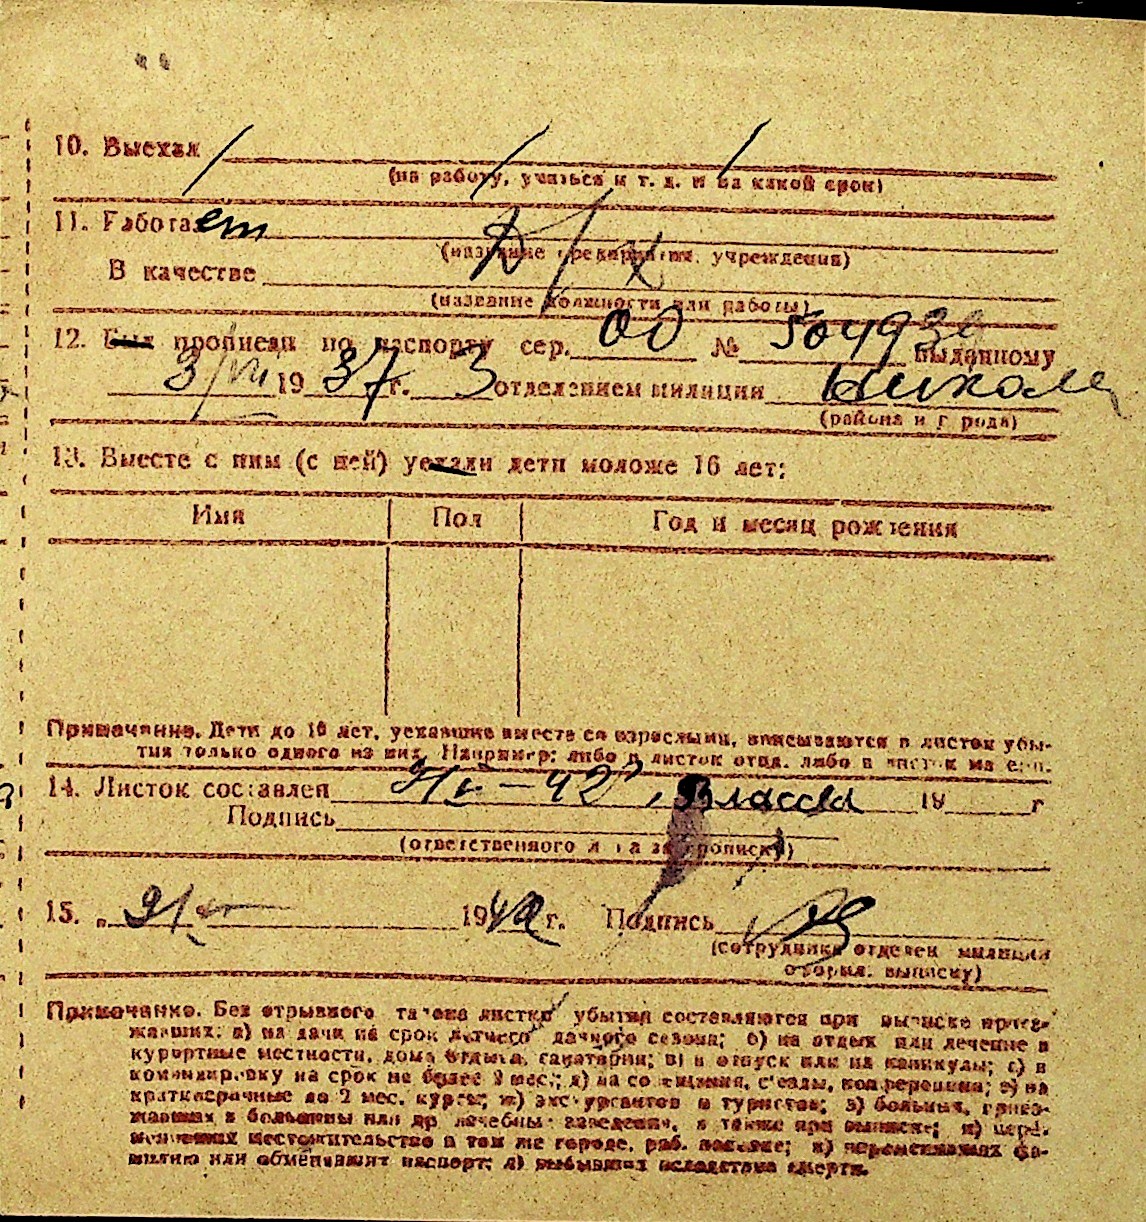 10. Выехал
(на работу, учиться и т. д. и на какой срок)
11. Работает
(название предприятия, учреждения)
В качестве Д/х
(название должности или работы)
12. Был прописан по паспорту сер. ОО № 504939 выданному
3/VII 1937 г. 3 отделением милиции Никола
(района и города)
13. Вместе с ним (с ней) уехали дети моложе 16 лет:
Имя Пол Год и месяц рождения
Примечание. Дети до 16 лет, уехавшие вместе со взрослыми, вписываются в листок убы-
тия только одного из них. Например: либо в листок отца, либо в листок матери.
14. Листок составлен 42 Власова 19 г
Подпись
(ответственного лица за прописку)
15. „ 1942 г. Подпись
(сотрудника отделен. милиции
оторил. выписку)
Примечание. Без отрывного талона листки убытия составляются при выписке приез-
жавших: а) на дачи на срок летнего дачного сезона; б) на отдых или лечение в
курортные местности, дома отдыха, санатории; в) в отпуск или на каникулы; г) в
командировку на срок не более 2 мес.; д) на совещания, съезды, конференции; е) на
краткосрочные до 2 мес. курсы; ж) экскурсантов и туристов; з) больных, приез-
жавших в больницы или др. лечебные заведения, а также при выписке; и) пере-
менивших местожительство в том же городе, раб. поселке; к) переменивших фа-
милию или обменявших паспорт; л) выбывших вследствие смерти.